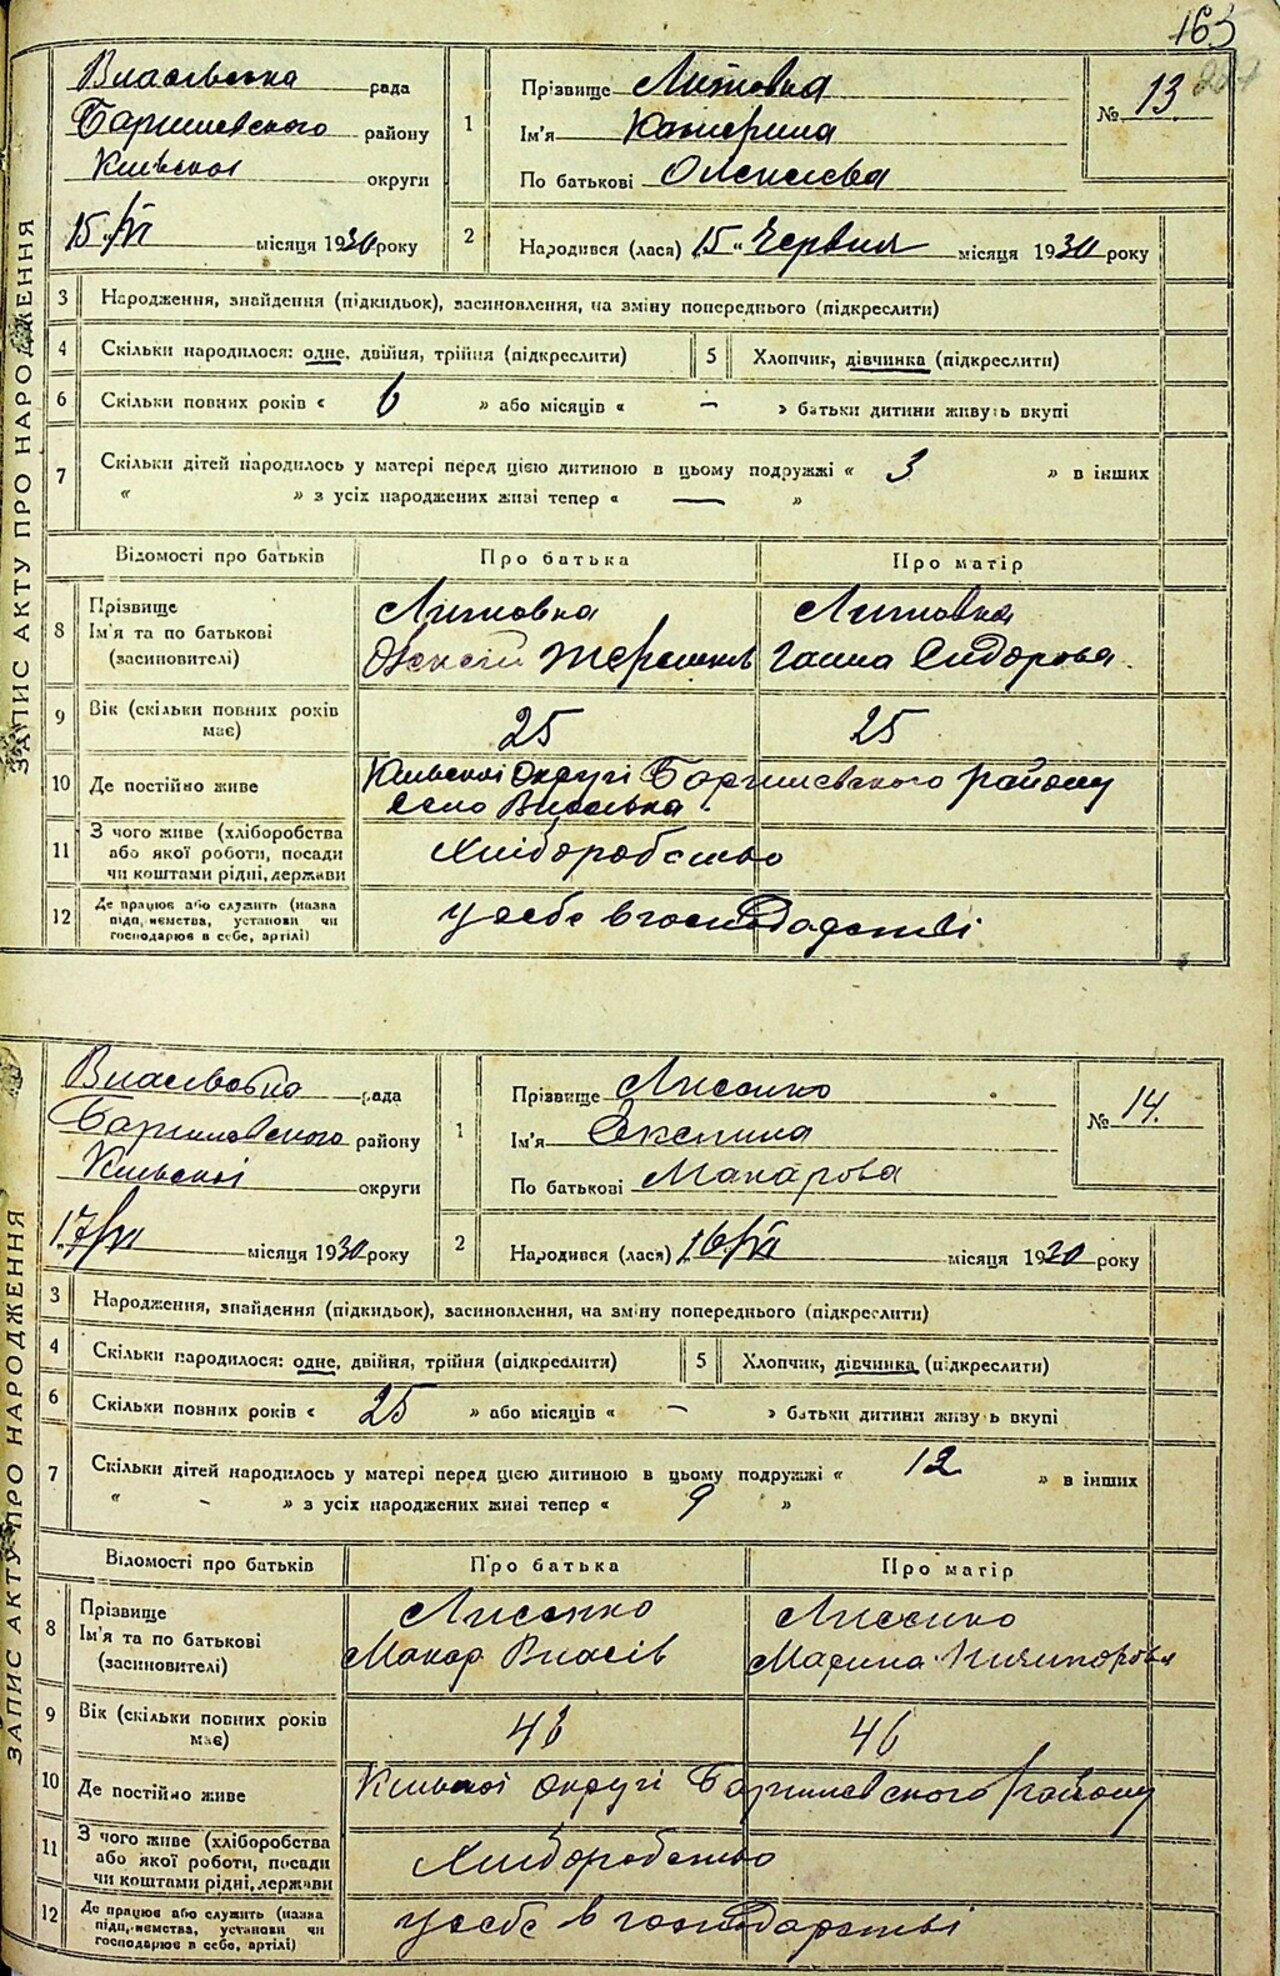 165
ЗАПИС АКТУ ПРО НАРОДЖЕННЯ
Власівська рада
Баришевського району
Київської округи
15/VI місяця 1930 року
1
Прізвище Литовка
Ім'я Катерина
По батькові Олексієва
№ 13.
2
Народився (лася) 15 „ Червня місяця 1930 року
3 Народження, знайдення (підкидьок), засиновлення, на зміну попереднього (підкреслити)
4 Скільки народилося: одне, двійня, трійня (підкреслити) 5 Хлопчик, дівчинка (підкреслити)
6 Скільки повних років « 6 » або місяців « – » батьки дитини живуть вкупі
7 Скільки дітей народилось у матері перед цією дитиною в цьому подружжі « 3 » в інших
« » з усіх народжених живі тепер « — »
Відомості про батьків Про батька Про матір
8 Прізвище Литовка Литовка
Ім'я та по батькові Олексій Терешков Ганна Сидорова
(засиновителі)
9 Вік (скільки повних років має) 25 25
10 Де постійно живе Київської Округі Баришевського району
село Власівка
11 З чого живе (хліборобства Хліборобство
або якої роботи, посади
чи коштами рідні, держави
12 Де працює або служить (назва у себе в господарстві
підприємства, установи чи
господарює в себе, артілі)
ЗАПИС АКТУ ПРО НАРОДЖЕННЯ
Власівська рада
Баришевського району
Київської округи
17/VI місяця 1930 року
1
Прізвище Лисенко
Ім'я
По батькові Макарова
№ 14.
2
Народився (лася) 16/VI місяця 1930 року
3 Народження, знайдення (підкидьок), засиновлення, на зміну попереднього (підкреслити)
4 Скільки народилося: одне, двійня, трійня (підкреслити) 5 Хлопчик, дівчинка (підкреслити)
6 Скільки повних років « 25 » або місяців « – » батьки дитини живуть вкупі
7 Скільки дітей народилось у матері перед цією дитиною в цьому подружжі « 12 » в інших
« – » з усіх народжених живі тепер « 9 »
Відомості про батьків Про батька Про матір
8 Прізвище Лисенко Лисенко
Ім'я та по батькові Макар Власів Марина Ничипорова
(засиновителі)
9 Вік (скільки повних років має) 46 46
10 Де постійно живе Київської округі Баришевського району
11 З чого живе (хліборобства Хліборобство
або якої роботи, посади
чи коштами рідні, держави
12 Де працює або служить (назва у себе в господарстві
підприємства, установи чи
господарює в себе, артілі)